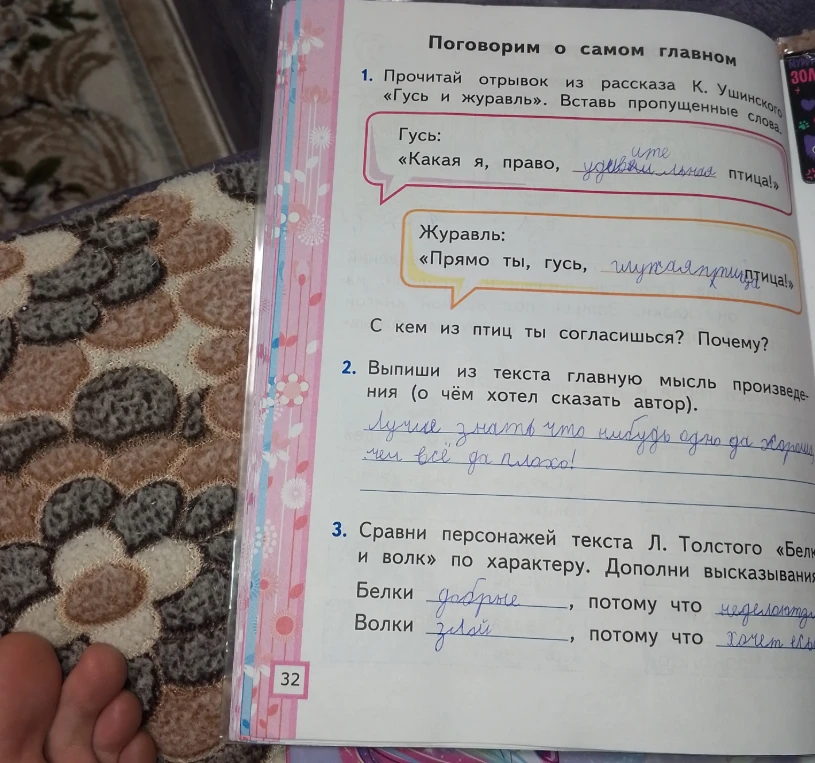 Поговорим о самом главном
1. Прочитай отрывок из рассказа К. Ушинского
«Гусь и журавль». Вставь пропущенные слова.
Гусь:
ите
«Какая я, право, удиви льная птица!»
Журавль:
«Прямо ты, гусь, птица!»
С кем из птиц ты согласишься? Почему?
2. Выпиши из текста главную мысль произведе-
ния (о чём хотел сказать автор).
Лучше знать что нибудь одно да хорошо,
чем всё да плохо!
3. Сравни персонажей текста Л. Толстого «Белк
и волк» по характеру. Дополни высказывания
Белки добрые, потому что
Волки злой, потому что хочет
32
ЗОЛ